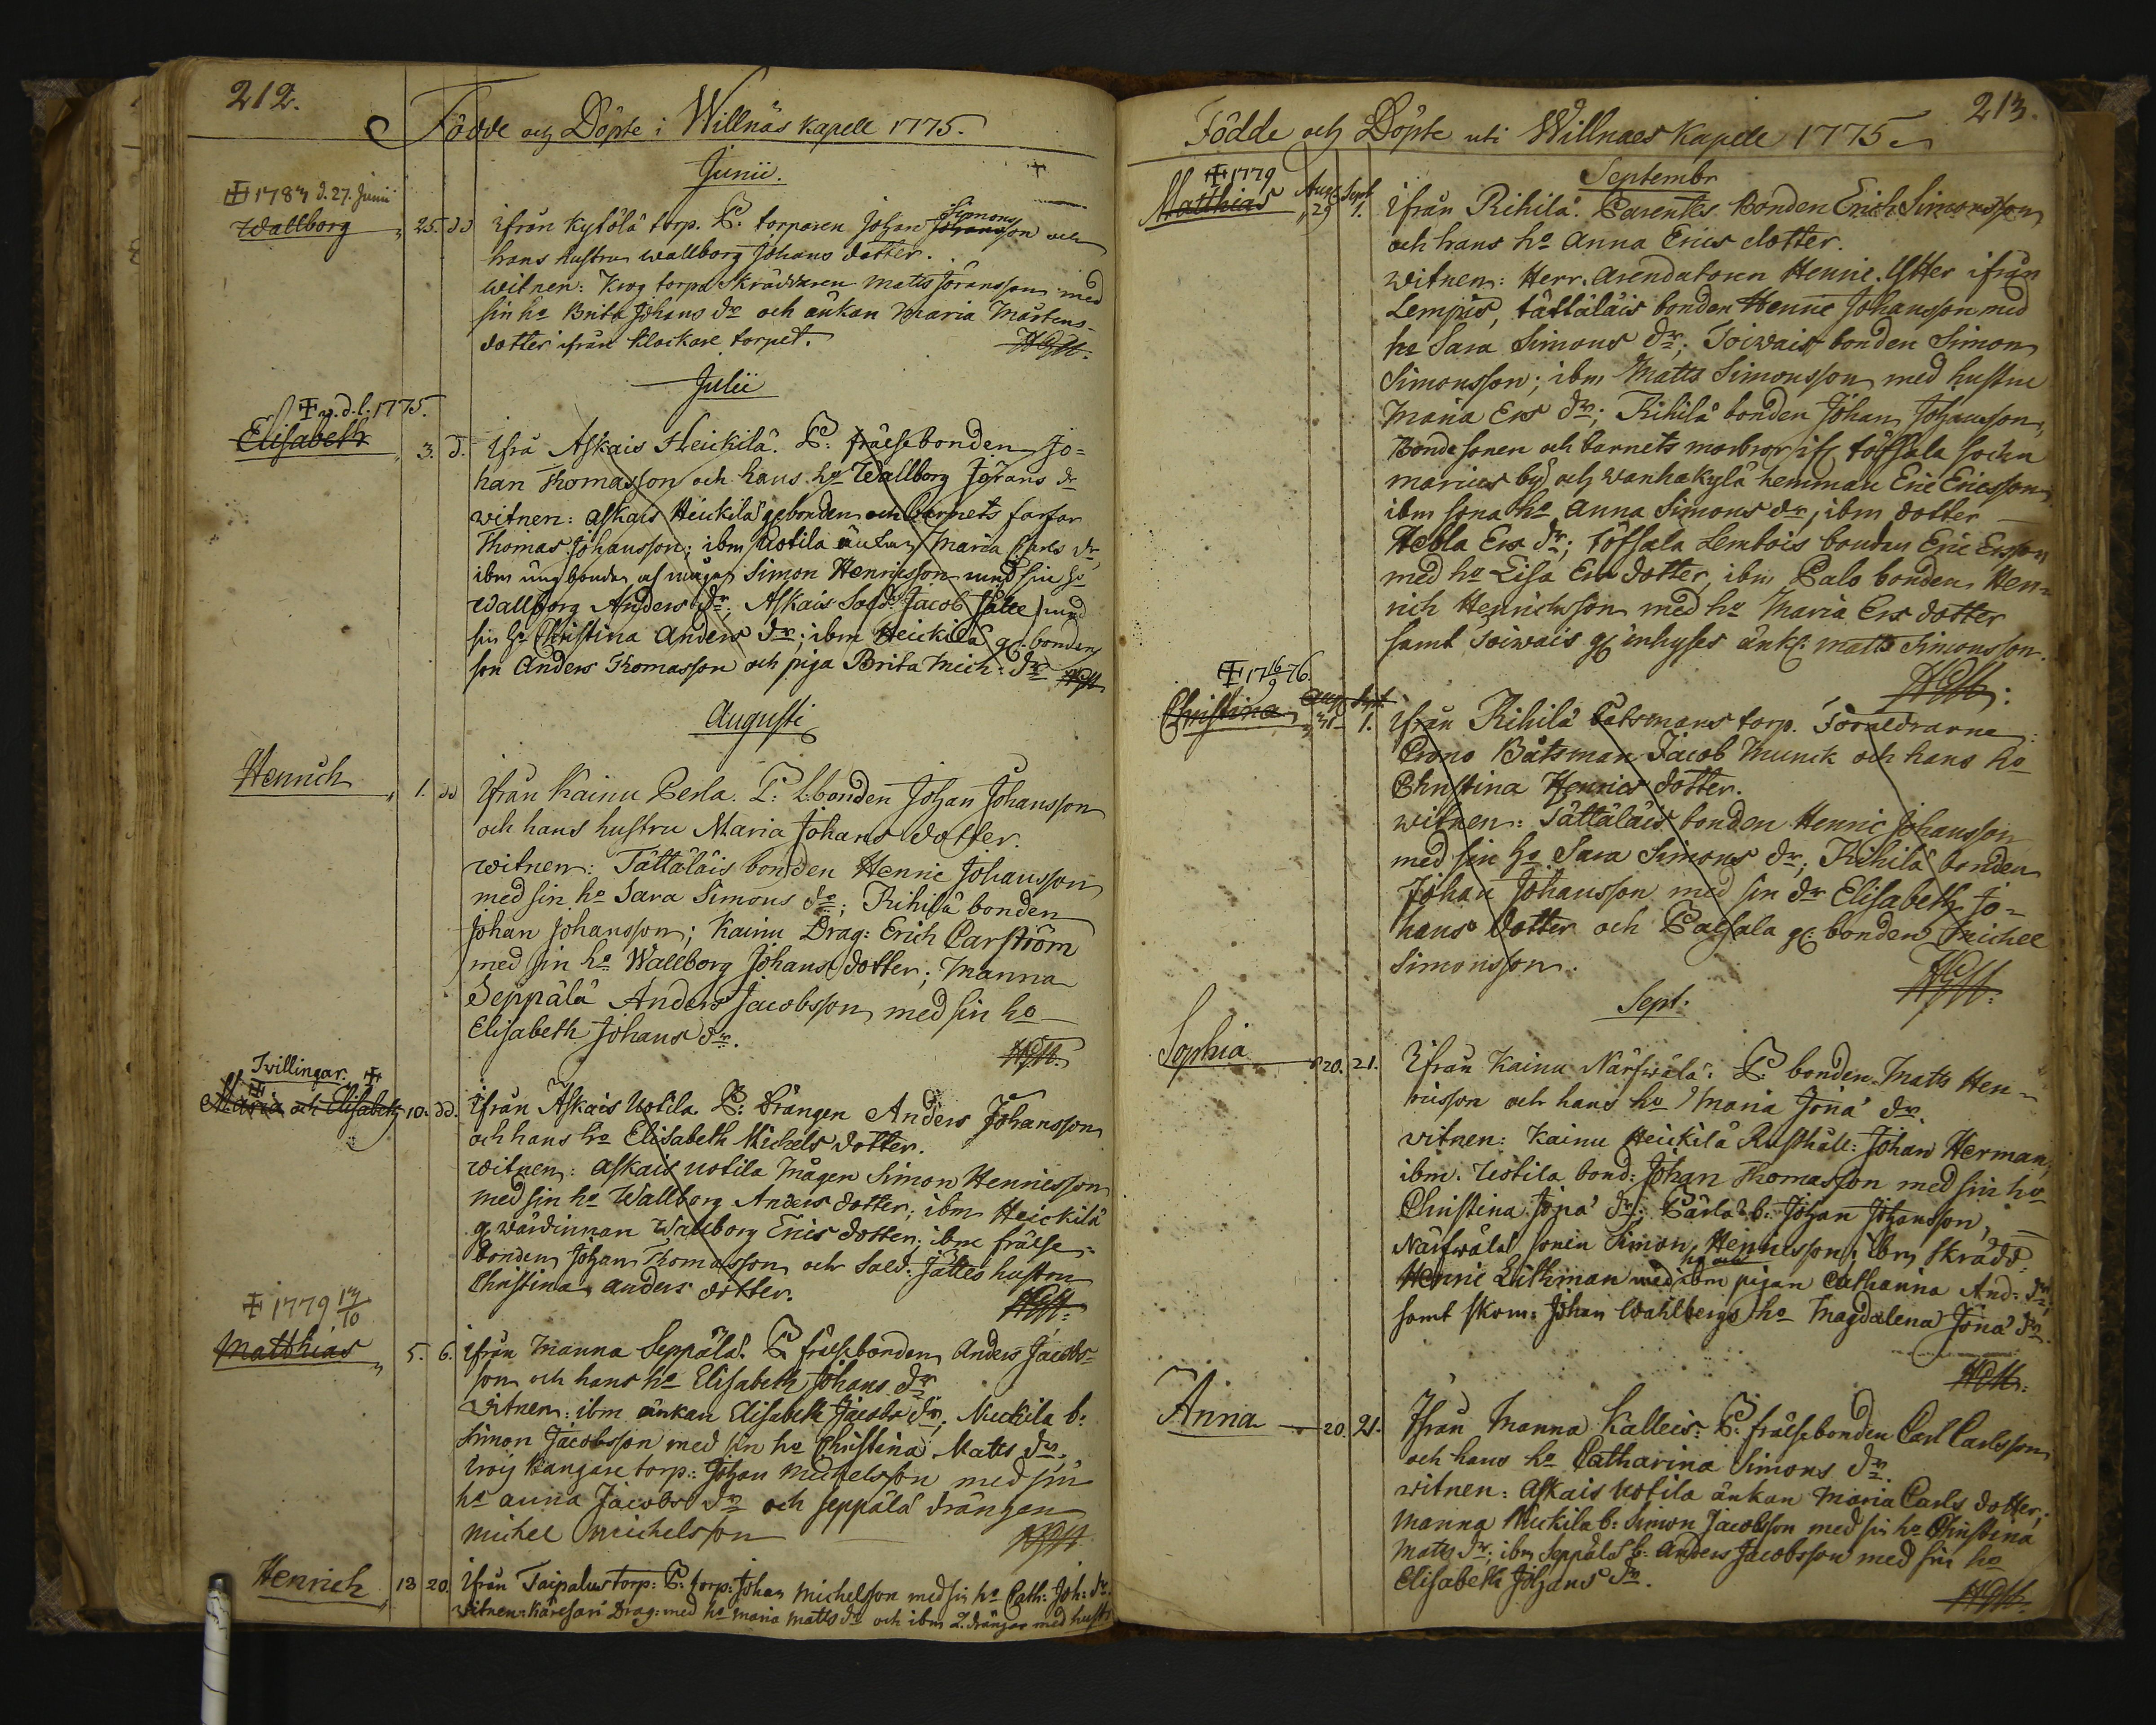 212.
Födde och Döpte i Willnäs Kapell 1775.
Junii.
1783 d. 27. Junii
Wallborg 25. dd Ifrån Kytölä torp. P: torparen Johan Simonsson och
hans hustru Wallborg Johans dotter.
witnen: Krog torps Skräddaren Matts Jöransson med
sin ho Brita Johans dr och änkan Maria Mårtens
dotter ifrån Klockare torpet.
Julii
1775.
Elisabeth 3. d. Ifrå Askais Heickilä. P: frälsebonden Jo=
han Thomasson och hans ho Wallborg Jörans dr
witnen: Askais Heickilä gl bonden och barnets farfar
Thomas Johansson; ibm Uotila änkan Maria Carls dr,
ibm ung bonden och mågen Simon Henricsson med sin ho
Wallborg Anders dr; Askais Sold: Jacob Jätte med
sin ho Christina Anders dr; ibm Heickilä gl. bondens
son Anders Thomasson och piga Brita Mich: dr
Augusti
Henrich 1. dd Ifrån Kainu Perla. P: bonden Johan Johansson
och hans hustru Maria Johans dotter.
witnen: Tättäläis bonden Henric Johansson
med sin ho Sara Simons dr; Rihilä bonden
Johan Johansson; Kainu Drag: Erich Carström
med sin ho Wallborg Johans dotter; Manna
Seppälä Anders Jacobsson med sin ho
Elisabeth Johans dr.
Tvillingar.
Maria och Elisabeth 10. dd. Ifrån Askais Uotila. P: Drängen Anders Johansson
och hans ho Elisabeth Michels dotter.
witnen: Askais Uotila Mågen Simon Henricsson
med sin ho Wallborg Anders dotter; ibm Heickilä
gl wärdinnan Wallborg Erics dotter; ibm frälse=
bonden Johan Thomasson och Sold: Jättes hustru
Christina Anders dotter.
1779 13/10
Matthias 5. 6. Ifrån Manna Seppälä. P: frälsebonden Anders Jacobs=
son och hans ho Elisabeth Johans dr
witnen: ibm änkan Elisabeth Jacobs dr; Nuckila b:
Simon Jacobsson med sin ho Christina Matts dr.
Kangare torp: Johan Michelsson med sin
ho Anna Jacobs dr och Seppälä drängen
Michel Michelsson
Henrich 13 20. Ifrån Taipalus torp: P: torp: Johan Michelsson med sin ho Cath: Joh: dr.
witnen: Käresari Drag: med ho Maria Matts dr och ibm 2. drängar med hustr
213.
Födde och Döpte uti Willnaes Kapell 1775
Septembr
1779
Aug: Sept
Matthias 29 1. Ifrån Rihilä. Parentes Bonden Erich Simonsson
och hans ho Anna Erics dotter.
witnen: Herr Arendatoren Henric Ytter ifrån
Lempis, tättäläis bonden Henric Johansson med
ho Sara Simons dr; Toiwais bonden Simon
Simonsson; ibm Matts Simonsson med hustru
Maria Ers dr; Rihilä bonden Johan Johansson,
Bonde sonen och barnets morbror if töfsala sochn
marics by och wanhakylä hemman Eric Ericsson
ibm sona ho Anna Simons dr, ibm dotter
Hebla Ers dr; töfsala Lembois bonden Eric Ersson
med ho Lisa Ers dotter, ibm Palo bonden Hen=
rich Henrichsson med ho Maria Ers dotter
samt Toiwais gl inhyses änkl: Matts Simonsson.
17 16/9 76.
Aug Sept.
Christina 31 1. Ifrån Rihilä Båtsmans torp. Föräldrarne:
Crono Båtsman Jacob Munck och hans ho
Christina Henrics dotter.
witnen: Tättäläis bonden Henric Johansson
med sin ho Sara Simons dr; Rihilä bonden
Johan Johansson med sin dr Elisabeth Jo=
hans dotter och Paisala gl: bonden Michel
Simonsson.
Sept.
Sophia 20. 21. Ifrån Kainu Närfwälä: P: bonden Matts Hen=
ricsson och hans ho Maria Jona dr.
witnen: Kainu Heickilä Rusthåll: Johan Herman,
ibm. Uotila bond: Johan Thomasson med sin ho
Christina Jona dr; Pärlä b: Johan Johansson,
Närfwälä sonen Simon Henricsson; ibm skrädd:
Henric Lithman med ibm pigan Catharina And: dr,
samt skom: Johan Wahlbergs ho Magdalena Jona dr.
Anna 20. 21. Ifrån Manna Kalleis: P: frälsebonden Carl Carlsson
och hans ho Catharina Simons dr.
witnen: Askais Uotila änkan Maria Carls dotter;
Manna Nuckila b: Simon Jacobsson med sin ho Christina
Matts dr; ibm Seppälä b: Anders Jacobsson med sin ho
Elisabeth Johans dr.